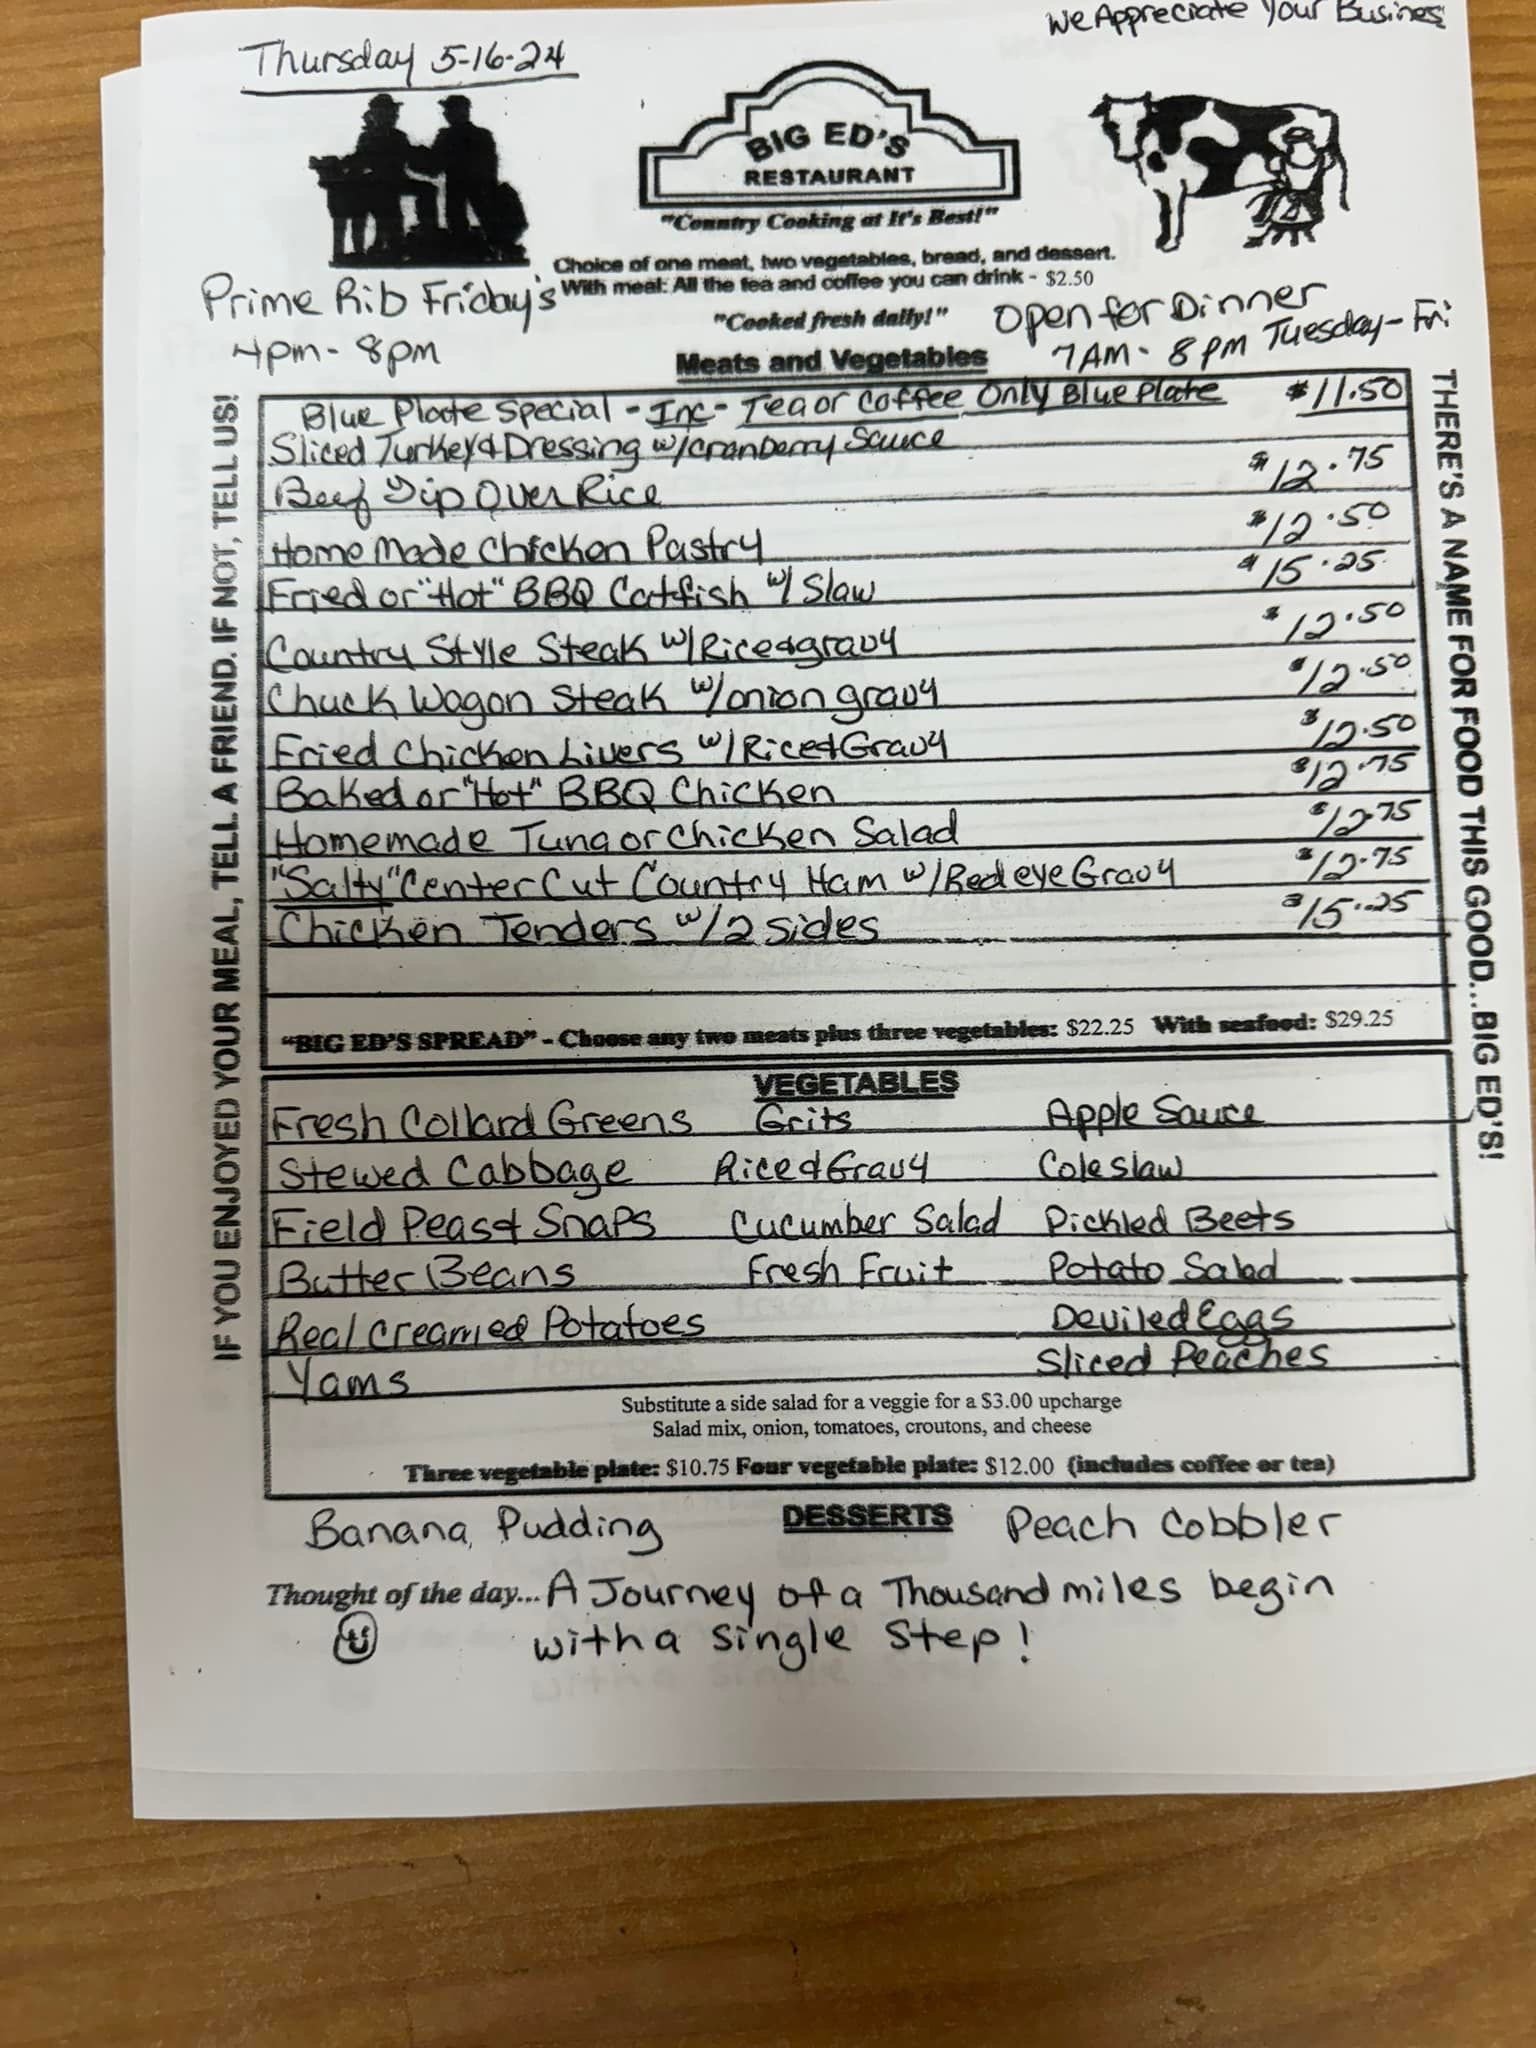 We Appreciate Your Busines
Thursday 5-16-24
BIG ED'S
RESTAURANT
"Country Cooking at It's Best!"
Choice of one meat, two vegetables, bread, and dessert.
With meal: All the tea and coffee you can drink - $2.50
"Cooked fresh daily!"
Prime Rib Friday's
4pm - 8pm
Open for Dinner
7AM - 8pm Tuesday - Fri
Meats and Vegetables
IF YOU ENJOYED YOUR MEAL, TELL A FRIEND. IF NOT, TELL US!
Blue Plate Special - Inc - Tea or Coffee Only Blue Plate $11.50
Sliced Turkey & Dressing w/cranberry Sauce
Beef Tip Over Rice $12.75
Home Made Chicken Pastry $12.50
Fried or "Hot" BBQ Catfish w/ Slaw $15.25
Country Style Steak w/Rice & gravy $12.50
Chuck Wagon Steak w/onion gravy $12.50
Fried Chicken Livers w/Rice & Gravy $12.50
Baked or "Hot" BBQ Chicken $12.75
Homemade Tuna or Chicken Salad $12.75
"Salty" Center Cut Country Ham w/Red eye Gravy $12.75
Chicken Tenders w/2 sides $15.25
"BIG ED'S SPREAD" - Choose any two meats plus three vegetables: $22.25 With seafood: $29.25
THERE'S A NAME FOR FOOD THIS GOOD...BIG ED'S!
VEGETABLES
Fresh Collard Greens Grits Apple Sauce
Stewed Cabbage Rice & Gravy Coleslaw
Field Peas & Snaps Cucumber Salad Pickled Beets
Butter Beans Fresh Fruit Potato Salad
Real Creamed Potatoes Deviled Eggs
Yams Sliced Peaches
Substitute a side salad for a veggie for a $3.00 upcharge
Salad mix, onion, tomatoes, croutons, and cheese
Three vegetable plate: $10.75 Four vegetable plate: $12.00 (includes coffee or tea)
DESSERTS
Banana Pudding Peach Cobbler
Thought of the day... A Journey of a Thousand miles begin
with a single step!